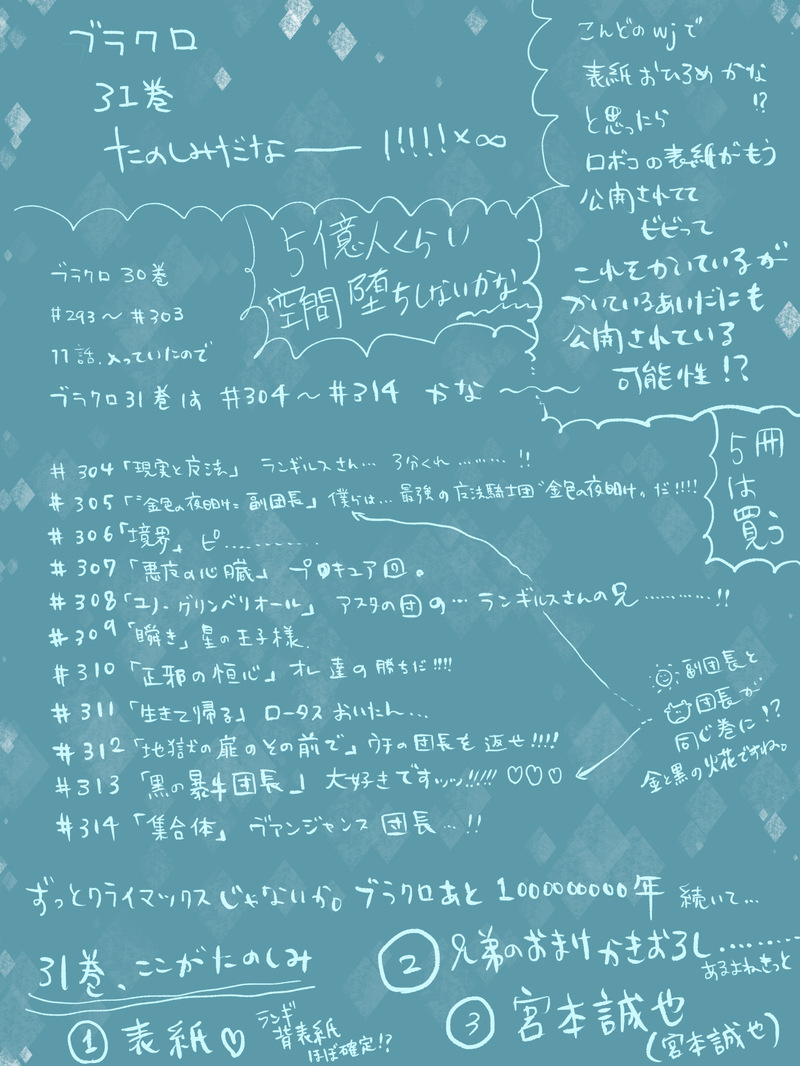 ブラクロ
31巻
たのしみだなー !!!!!×∞
こんどのwjで
表紙おひろめかな
!?
と思ったら
ロボコの表紙がもう
公開されてて
ビビって
これをかいているが
かいているあいだにも
公開されている
可能性!?
5億人くらい
空間堕ちしないかな
ブラクロ 30巻
#293〜#303
11話入っていたので
ブラクロ31巻は #304〜#314 かな〜
5冊
は
買う
#304「現実と魔法」 ランギルスさん… 3分くれ………!!
#305「"金色の夜明け"副団長」 僕らは… 最強の魔法騎士団"金色の夜明け"だ!!!!
#306「境界」 ピ…………
#307「悪夜の心臓」 プロキュア回。
#308「ユノ・グリンベリオール」 アスタの団の… ランギルスさんの兄…………!!
#309「瞬き」 星の王子様.
#310「正邪の恒心」 オレ達の勝ちだ!!!!
#311「生きて帰る」 ロータスおいたん…
#312「地獄の扉のその前で」 ウチの団長を返せ!!!!
#313「黒の暴牛団長」 大好きですッッ!!!!! ♡♡♡
#314「集合体」 ヴァンジャンス団長…!!
副団長と
団長が
同じ巻に!?
金と黒の火花ですね。
ずっとクライマックスじゃないか。ブラクロあと1000000000年 続いて…
31巻、ここがたのしみ
① 表紙♡
ランギ
背表紙
ほぼ確定!?
② 兄弟のおまけかきおろし………
あるよねきっと
③ 宮本誠也
(宮本誠也)